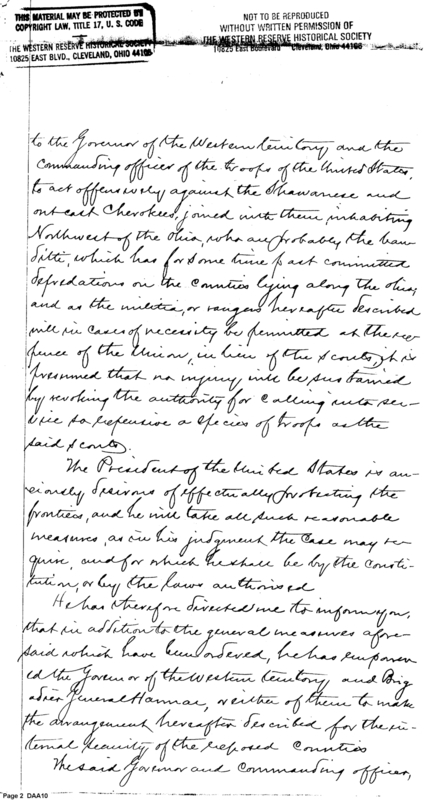 THIS MATERIAL MAY BE PROTECTED BY
COPYRIGHT LAW, TITLE 17, U. S. CODE
THE WESTERN RESERVE HISTORICAL SOCIETY
10825 EAST BLVD., CLEVELAND, OHIO 44106
NOT TO BE REPRODUCED
WITHOUT WRITTEN PERMISSION OF
THE WESTERN RESERVE HISTORICAL SOCIETY
10825 East Boulevard Cleveland, Ohio 44106
to the Governor of the Western territory, and the
commanding officer of the troops of the United States,
to act offensively against the Shawanese and
outcast Cherokees, joined with them inhabiting
Northwest of the Ohio, who are probably the ban-
ditti, which has for some time past committed
depredations on the counties lying along the Ohio,
and as the militia, or rangers hereafter described
will in cases of necessity be permitted at the ex-
pence of the Union, in lieu of the scouts, it is
presumed that no injury will be sustained
by revoking the authority for calling into ser-
vice so expensive a species of troops as the
said scouts.
The President of the United States is an-
xiously desirous of effectually protecting the
frontiers, and he will take all such reasonable
measures, as in his judgment the case may re-
quire, and for which he shall be by the consti-
tution, or by the laws authorised
He has therefore directed me to inform you,
that in addition to the general measures afore-
said which have been ordered, he has empower-
ed the Governor of the Western territory and Brig-
adier General Harmar, or either of them to make
the arrangement hereafter described for the in-
ternal security of the exposed Counties
The said Governor and commanding officer,
Page 2 DAA10